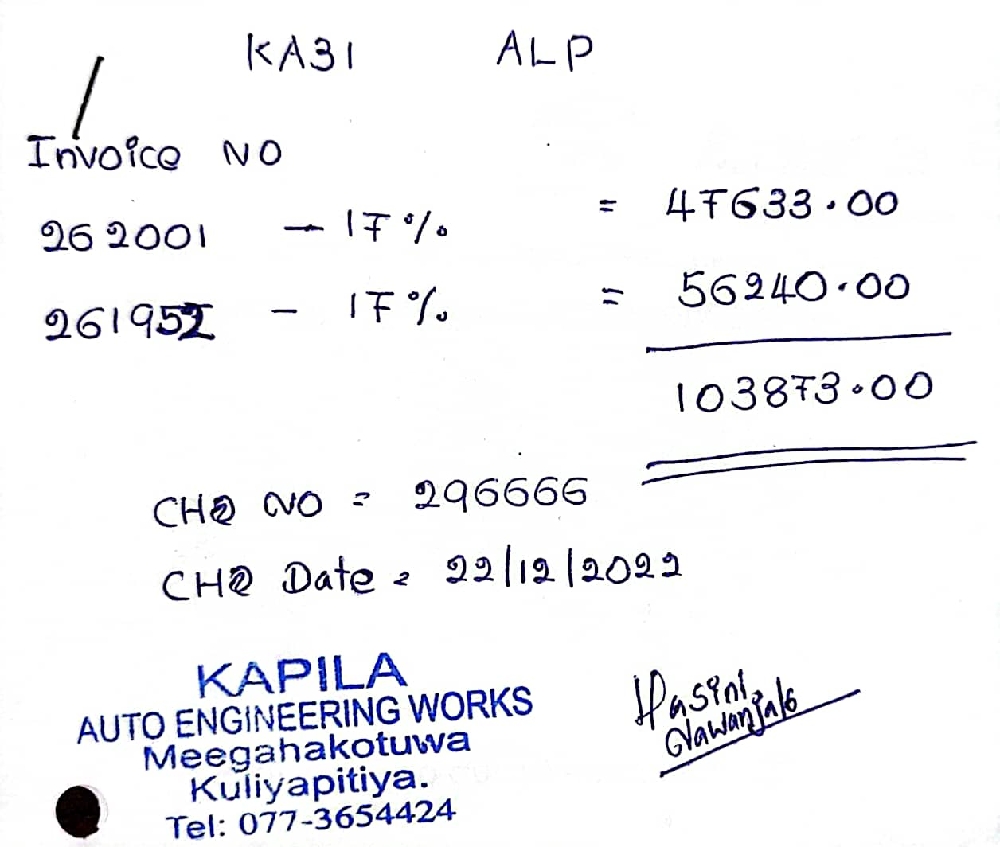 KA31 ALP
Invoice NO
262001 - 17% = 47633.00
261952 - 17% = 56240.00
103873.00
CHQ NO = 296666
CHQ Date = 22/12/2022
KAPILA
AUTO ENGINEERING WORKS
Meegahakotuwa
Kuliyapitiya.
Tel: 077-3654424
Hasini